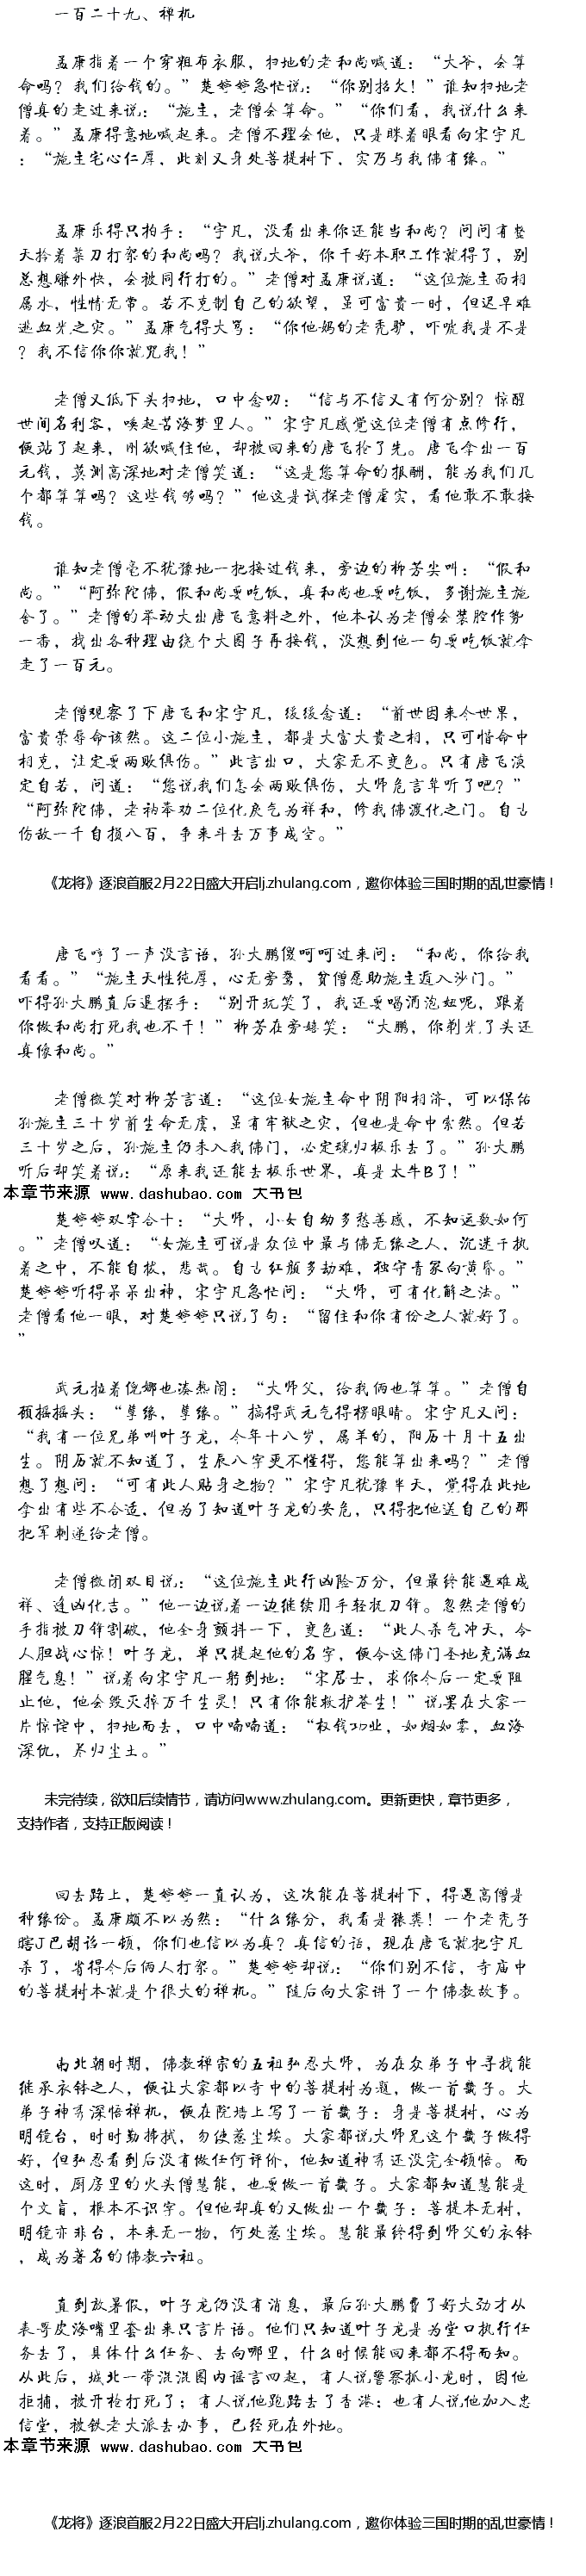 一百二十九、禅机
孟康指着一个穿粗布衣服，扫地的老和尚喊道：“大爷，会算
命吗？我们给钱的。”楚婷婷急忙说：“你别招欠！”谁知扫地老
僧真的走过来说：“施主，老僧会算命。”“你们看，我说什么来
着。”孟康得意地喊起来。老僧不理会他，只是眯着眼看向宋宇凡
：“施主宅心仁厚，此刻又身处菩提树下，实乃与我佛有缘。”
孟康乐得只拍手：“宇凡，没看出来你还能当和尚？问问有整
天拎着菜刀打架的和尚吗？我说大爷，你干好本职工作就得了，别
总想赚外快，会被同行打的。”老僧对孟康说道：“这位施主面相
属水，性情无常。若不克制自己的欲望，虽可富贵一时，但迟早难
逃血光之灾。”孟康气得大骂：“你他妈的老秃驴，吓唬我是不是
？我不信你你就咒我！”
老僧又低下头扫地，口中念叨：“信与不信又有何分别？惊醒
世间名利客，唤起苦海梦里人。”宋宇凡感觉这位老僧有点修行，
便站了起来，刚欲喊住他，却被回来的唐飞抢了先。唐飞拿出一百
元钱，莫测高深地对老僧笑道：“这是您算命的报酬，能为我们几
个都算算吗？这些钱够吗？”他这是试探老僧虚实，看他敢不敢接
钱。
谁知老僧毫不犹豫地一把接过钱来，旁边的柳芳尖叫：“假和
尚。”“阿弥陀佛，假和尚要吃饭，真和尚也要吃饭，多谢施主施
舍了。”老僧的举动大出唐飞意料之外，他本认为老僧会装腔作势
一番，找出各种理由绕个大圈子再接钱，没想到他一句要吃饭就拿
走了一百元。
老僧观察了下唐飞和宋宇凡，缓缓念道：“前世因来今世果，
富贵荣辱命该然。这二位小施主，都是大富大贵之相，只可惜命中
相克，注定要两败俱伤。”此言出口，大家无不变色。只有唐飞淡
定自若，问道：“您说我们怎会两败俱伤，大师危言耸听了吧？”
“阿弥陀佛，老衲奉劝二位化戾气为祥和，修我佛渡化之门。自古
伤敌一千自损八百，争来斗去万事成空。”
《龙将》逐浪首服2月22日盛大开启lj.zhulang.com，邀你体验三国时期的乱世豪情！
唐飞哼了一声没言语，孙大鹏傻呵呵过来问：“和尚，你给我
看看。”“施主天性纯厚，心无旁鹜，贫僧愿助施主遁入沙门。”
吓得孙大鹏直后退摆手：“别开玩笑了，我还要喝酒泡妞呢，跟着
你做和尚打死我也不干！”柳芳在旁嬉笑：“大鹏，你剃光了头还
真像和尚。”
老僧微笑对柳芳言道：“这位女施主命中阴阳相济，可以保佑
孙施主三十岁前生命无虞，虽有牢狱之灾，但也是命中索然。但若
三十岁之后，孙施主仍未入我佛门，必定魂归极乐去了。”孙大鹏
听后却笑着说：“原来我还能去极乐世界，真是太牛B了！”
本章节来源 www.dashubao.com 大书包
楚婷婷双掌合十：“大师，小女自幼多愁善感，不知运数如何
。”老僧叹道：“女施主可说是众位中最与佛无缘之人，沉迷于执
着之中，不能自拔，悲哉。自古红颜多劫难，独守青冢向黄昏。”
楚婷婷听得呆呆出神，宋宇凡急忙问：“大师，可有化解之法。”
老僧看他一眼，对楚婷婷只说了句：“留住和你有份之人就好了。
”
武元拉着倪娜也凑热闹：“大师父，给我俩也算算。”老僧自
顾摇摇头：“孽缘，孽缘。”搞得武元气得楞眼睛。宋宇凡又问：
“我有一位兄弟叫叶子龙，今年十八岁，属羊的，阳历十月十五出
生。阴历就不知道了，生辰八字更不懂得，您能算出来吗？”老僧
想了想问：“可有此人贴身之物？”宋宇凡犹豫半天，觉得在此地
拿出有些不合适，但为了知道叶子龙的安危，只得把他送自己的那
把军刺递给老僧。
老僧微闭双目说：“这位施主此行凶险万分，但最终能遇难成
祥、逢凶化吉。”他一边说着一边继续用手轻抚刀锋。忽然老僧的
手指被刀锋割破，他全身颤抖一下，变色道：“此人杀气冲天，令
人胆战心惊！叶子龙，单只提起他的名字，便令这佛门圣地充满血
腥气息！”说着向宋宇凡一躬到地：“宋居士，求你今后一定要阻
止他，他会毁灭掉万千生灵！只有你能救护苍生！”说罢在大家一
片惊诧中，扫地而去，口中喃喃道：“权钱功业，如烟如雾，血海
深仇，终归尘土。”
未完待续，欲知后续情节，请访问www.zhulang.com。更新更快，章节更多，
支持作者，支持正版阅读！
回去路上，楚婷婷一直认为，这次能在菩提树下，得遇高僧是
种缘份。孟康颇不以为然：“什么缘分，我看是猿粪！一个老秃子
瞎J巴胡诌一顿，你们也信以为真？真信的话，现在唐飞就把宇凡
杀了，省得今后俩人打架。”楚婷婷却说：“你们别不信，寺庙中
的菩提树本就是个很大的禅机。”随后向大家讲了一个佛教故事。
南北朝时期，佛教禅宗的五祖弘忍大师，为在众弟子中寻找能
继承衣钵之人，便让大家都以寺中的菩提树为题，做一首偈子。大
弟子神秀深悟禅机，便在院墙上写了一首偈子：身是菩提树，心为
明镜台，时时勤拂拭，勿使惹尘埃。大家都说大师兄这个偈子做得
好，但弘忍看到后没有做任何评价，他知道神秀还没完全顿悟。而
这时，厨房里的火头僧慧能，也要做一首偈子。大家都知道慧能是
个文盲，根本不识字。但他却真的又做出一个偈子：菩提本无树，
明镜亦非台，本来无一物，何处惹尘埃。慧能最终得到师父的衣钵
，成为著名的佛教六祖。
直到放暑假，叶子龙仍没有消息，最后孙大鹏费了好大劲才从
表哥皮海嘴里套出来只言片语。他们只知道叶子龙是为堂口执行任
务去了，具体什么任务、去向哪里，什么时候能回来都不得而知。
从此后，城北一带混混圈内谣言四起，有人说警察抓小龙时，因他
拒捕，被开枪打死了；有人说他跑路去了香港；也有人说他加入忠
信堂，被铁老大派去办事，已经死在外地。
本章节来源 www.dashubao.com 大书包
《龙将》逐浪首服2月22日盛大开启lj.zhulang.com，邀你体验三国时期的乱世豪情！